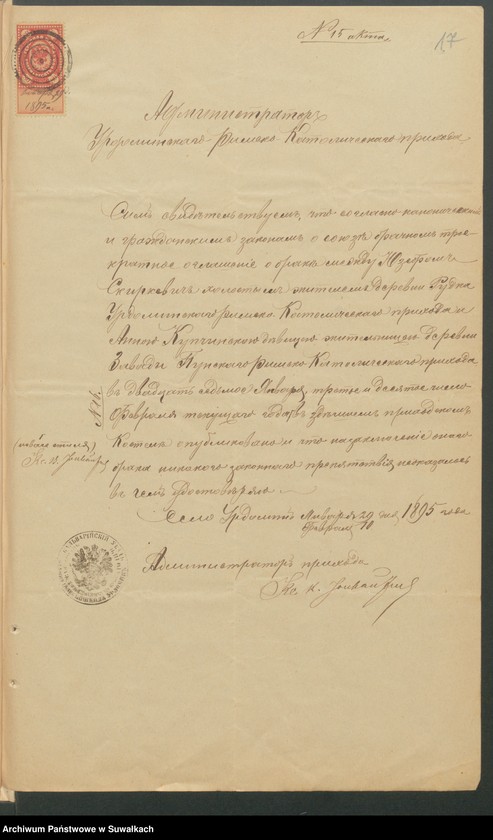 № 15 акта.
17
1895 г.
Администраторъ
Римско-Католическаго прихода
Симъ свидѣтельствуемъ, что согласно каноническимъ
и гражданскимъ законамъ о союзѣ брачномъ трое-
кратное оглашеніе о бракѣ между Юзефомъ
Скиркевичъ холостымъ жителемъ деревни Рудка
Урдоминскаго Римско-Католическаго прихода и
Анною Купчинскою дѣвицею жительницею деревни
Заводы Пунскаго Римско-Католическаго прихода
въ двадцать седьмое Января, третье и десятое число
Февраля текущаго года въ здѣшнемъ приходскомъ
Костелѣ опубликовано и что на заключеніе онаго
брака никакого законнаго препятствія не оказалось
въ чемъ удостовѣряю.
Село Урдоминъ Января 29 дня 1895 года
Февраля 10
Администраторъ прихода
Кс. К.
№ 16.
Кс. К.
Archiwum Państwowe w Suwałkach